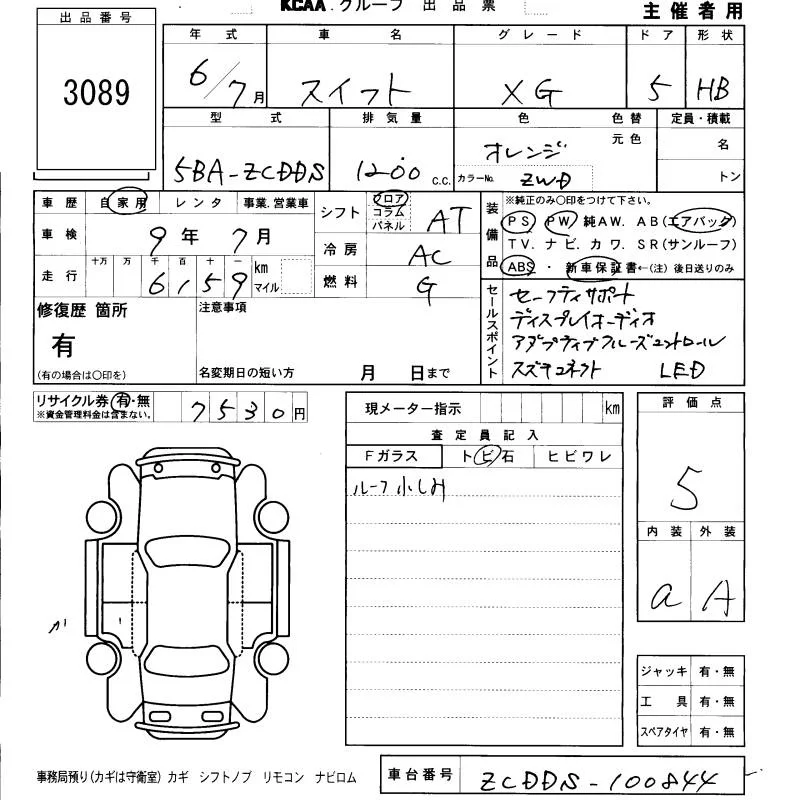 KCAA.グループ 出品票
主催者用
出品番号
3089
年式 車名 グレード ドア 形状
6/7月 スイフト XG 5 HB
型式 排気量 色 色替 定員・積載
元色
5BA-ZCDDS 1200 C.C. オレンジ 名
カラーNo. ZWD トン
車歴 自家用 レンタ 事業.営業車
車検 9年 7月
走行 十万 万 千 百 十 一
6 1 5 9 km マイル
シフト フロア コラム パネル AT
冷房 AC
燃料 G
装備品 ※純正のみ〇印をつけて下さい。
PS PW 純AW. AB(エアバッグ)
TV. ナビ. カワ. SR(サンルーフ)
ABS・新車保証書←(注)後日送りのみ
修復歴 箇所
有
(有の場合は〇印を)
注意事項
名変期日の短い方 月 日まで
セールスポイント
セーフティサポート
ディスプレイオーディオ
アダプティブクルーズコントロール
スズキコネクト LED
リサイクル券 有・無
※資金管理料金は含まない。
7530円
現メーター指示 km
査定員記入
Fガラス トビ石 ヒビワレ
ルーフ小しみ
評価点
5
内装 外装
a A
ジャッキ 有・無
工具 有・無
スペアタイヤ 有・無
事務局預り(カギは守衛室) カギ シフトノブ リモコン ナビロム
車台番号 ZCDDS-100844